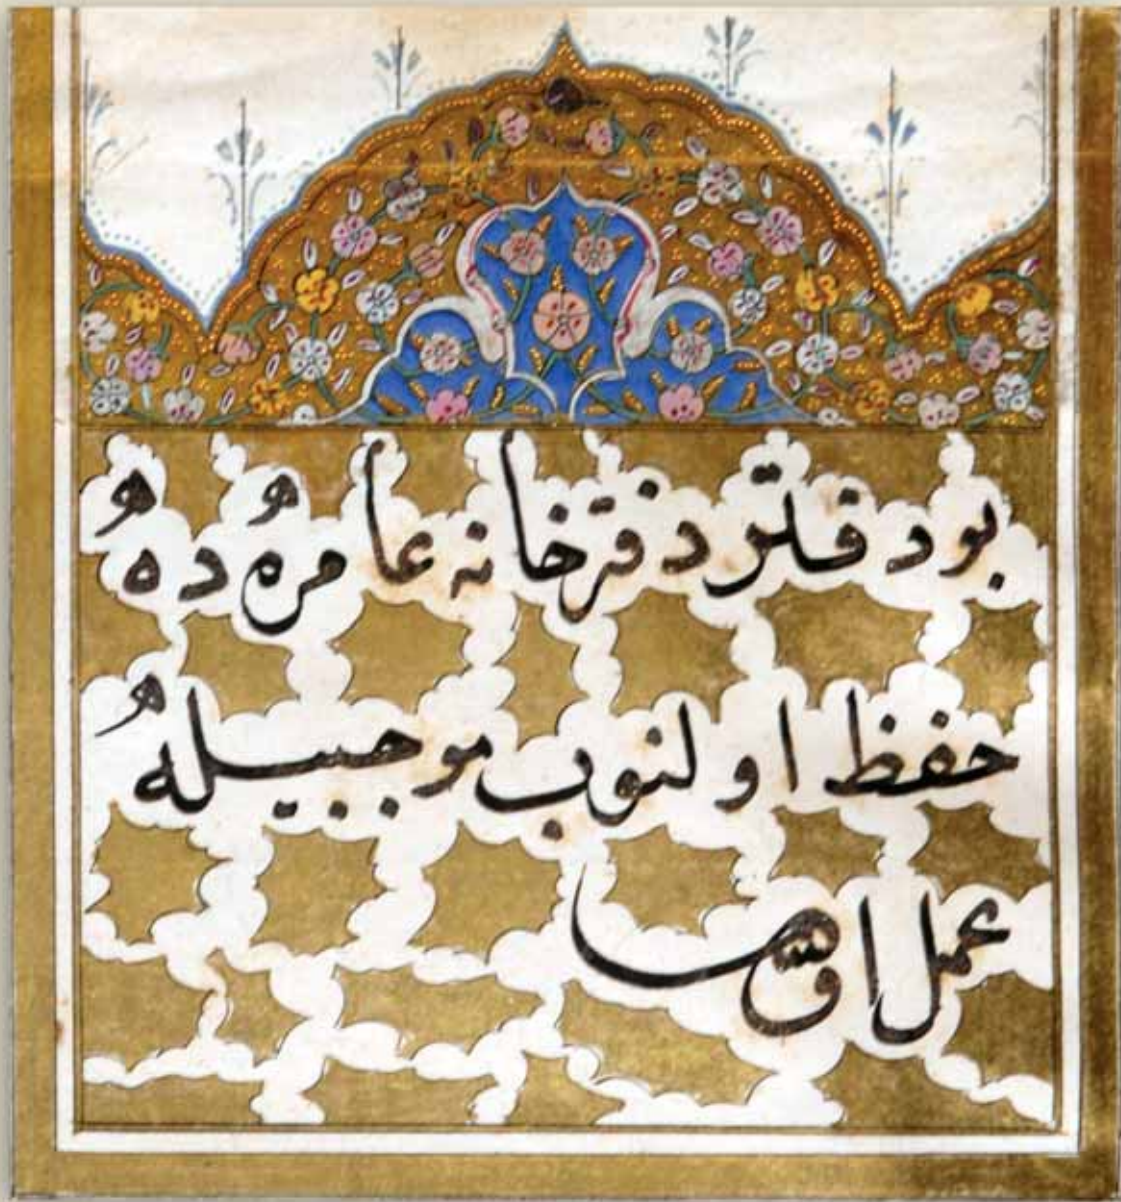 بو دفتر دفترخانه عامره ده
حفظ اولنوب موجبيله
عمل اولنه